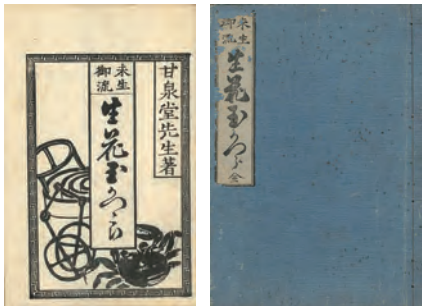 甘泉堂先生著
未生
御流
生花玉かつら
未生
御流
生花玉かつら
全